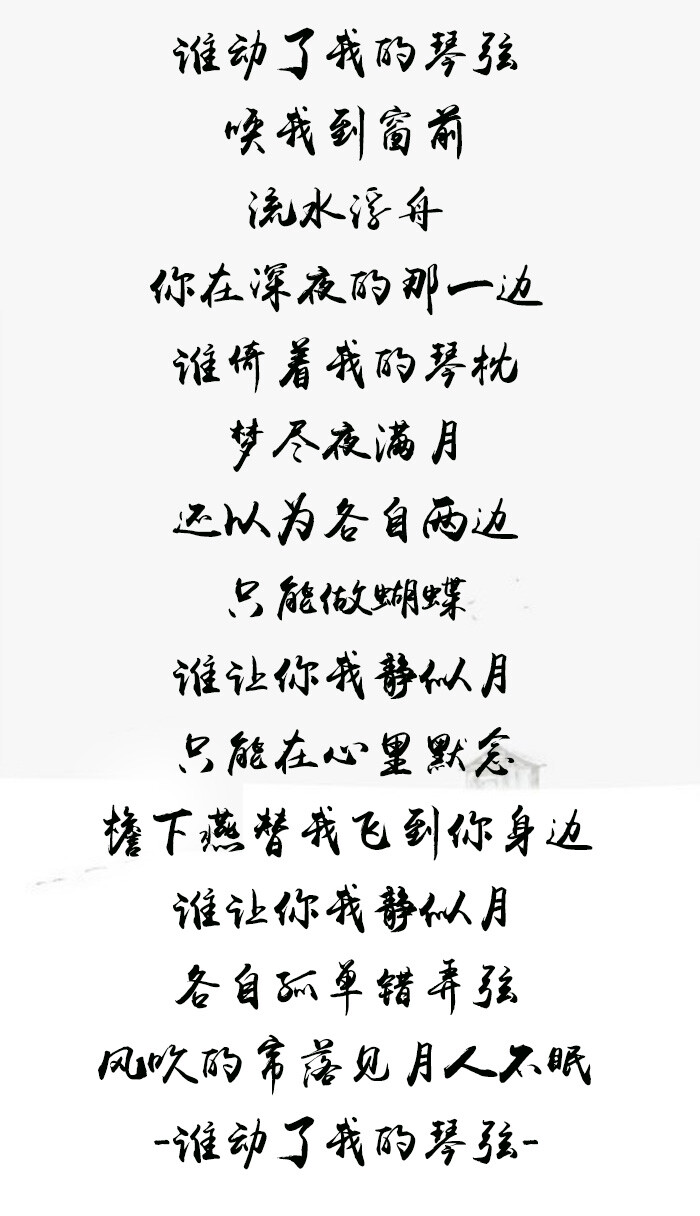 谁动了我的琴弦
唤我到窗前
流水浮舟
你在深夜的那一边
谁倚着我的琴枕
梦尽夜满月
还以为各自两边
只能做蝴蝶
谁让你我静似月
只能在心里默念
檐下燕替我飞到你身边
谁让你我静似月
各自孤单错弄弦
风吹的帘落见月人不眠
-谁动了我的琴弦-